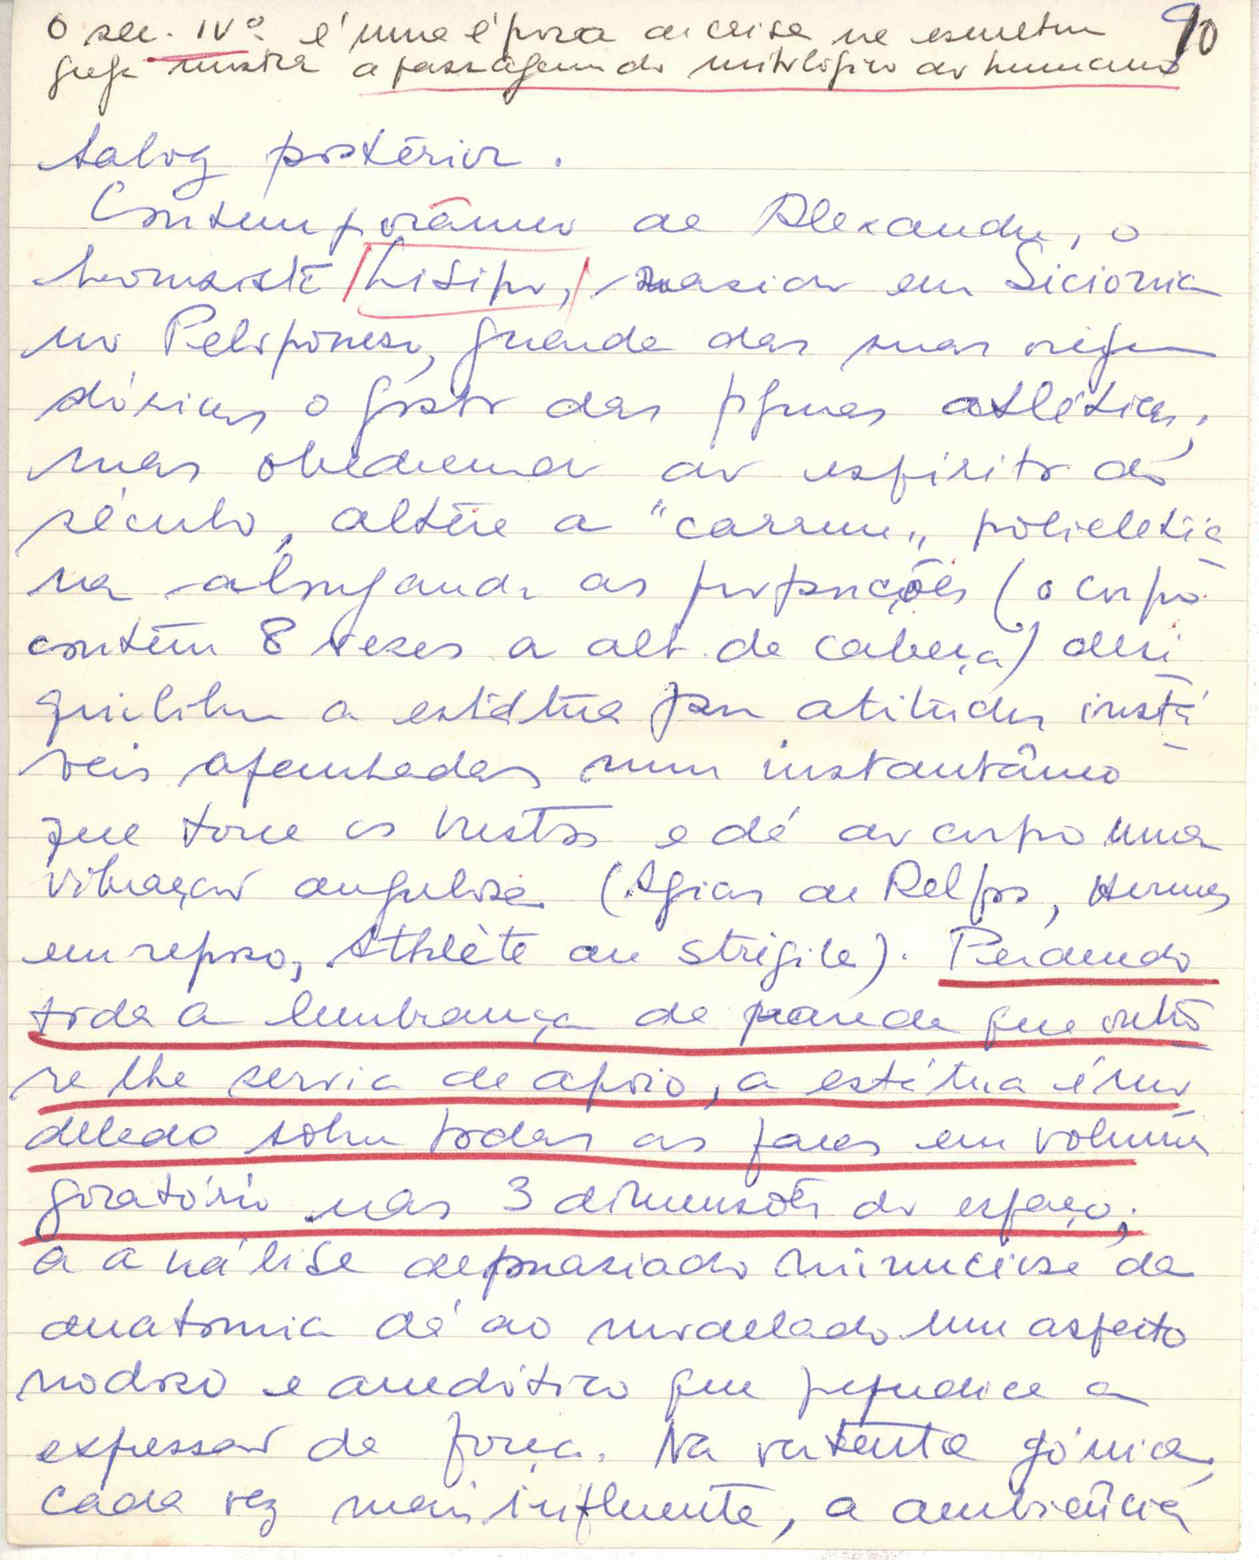 O sec. IVº é uma época de crise na escultura 90
grega mostra a passagem do mitológico ao humano
posterior.
Contemporâneo de Alexandre, o
bronzista Lisipo, nascido em Siciónia
no Peloponeso, guarda das suas origens
dóricas o gosto das figuras atléticas,
mas obedecendo ao espírito do
século, altera a "canon" policletia
na alongando as proporções (o corpo
contém 8 vezes a alt. da cabeça) dese
quilibra a estátua por atitudes instá
veis apanhadas num instantâneo
que torce os bustos e dá ao corpo uma
vibração angulosa (Agias de Delfos, Hermes
em repouso, Athlète au strigile). Perdendo
toda a lembrança da parede que outro
ra lhe servia de apoio, a estátua é mo
delada sobre todas as faces em volume
giratório nas 3 dimensões do espaço;
a análise demasiado minuciosa da
anatomia dá ao modelado um aspecto
nodoso e anedótico que prejudica a
expressão da força. Na vertente jónica,
cada vez mais influente, a ambiência